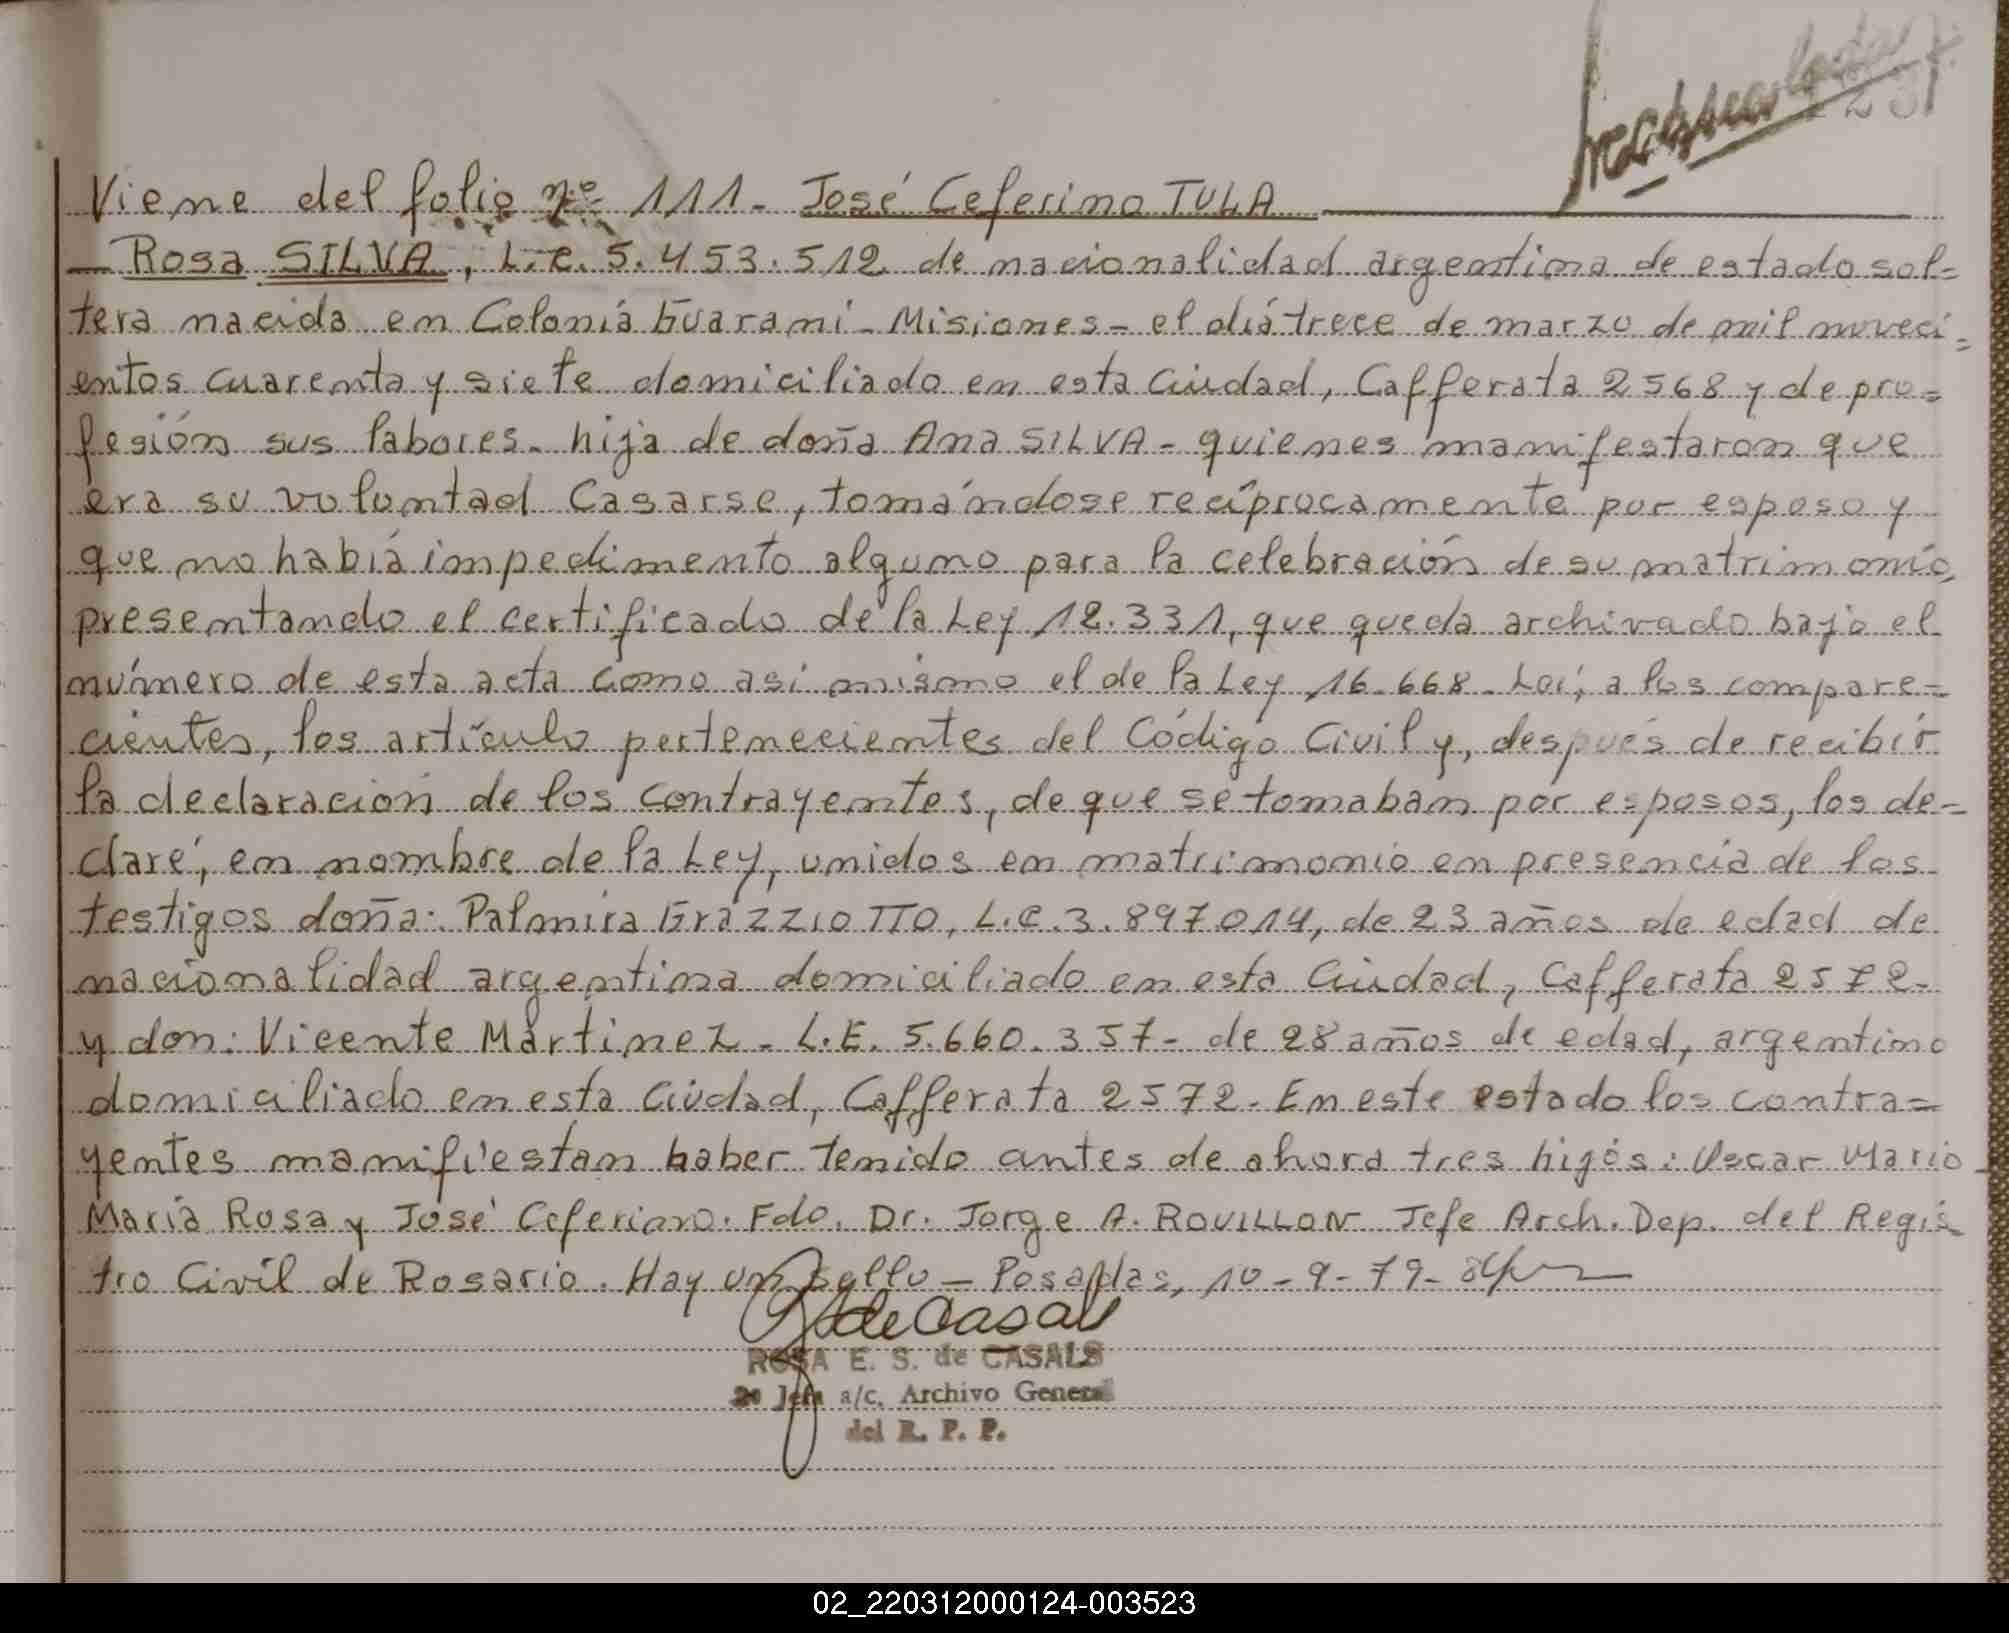 Viene del folio nº 111- José Ceferino TULA
- Rosa SILVA, L.C. 5.453.512 de nacionalidad argentina de estado sol=
tera nacida en Colonia Guaraní - Misiones - el día trece de marzo de mil noveci=
entos cuarenta y siete domiciliado en esta Ciudad, Cafferata 2568 y de pro=
fesión sus labores. hija de doña Ana SILVA - quienes manifestaron que
era su voluntad Casarse, tomándose recíprocamente por esposo y
que no había impedimento alguno para la celebración de su matrimonio,
presentando el certificado de la Ley 12.331, que queda archivado bajo el
número de esta acta como así mismo el de la Ley 16.668. Leí, a los compare=
cientes, los artículo pertenecientes del Código Civil y, después de recibir
la declaración de los contrayentes, de que se tomaban por esposos, los de=
claré, en nombre de la Ley, unidos en matrimonio en presencia de los
testigos doña: Palmira GrazzioTTO, L.C. 3.897.014, de 23 años de edad de
nacionalidad argentina domiciliado en esta Ciudad, Cafferata 2572.
y don: Vicente Martinez - L.E. 5.660.357- de 28 años de edad, argentino
domiciliado en esta Ciudad, Cafferata 2572. En este estado los contra=
yentes manifiestan haber tenido antes de ahora tres hijos: Oscar Mario-
María Rosa y José Ceferino. Fdo. Dr. Jorge A. ROUILLON Jefe Arch. Dep. del Regis
tro Civil de Rosario. Hay un sello - Posadas, 10-9-79-
de Casals
ROSA E. S. de CASALS
2º Jefa a/c. Archivo General
del R. P. P.
02_220312000124-003523